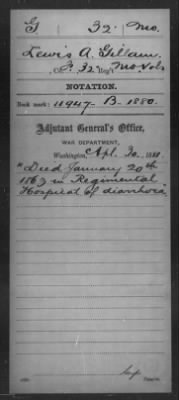 G 32 Mo.
Lewis A. Gillam
P. 32 Reg't Mo Vols
NOTATION.
Book mark: 11947-B-1880.
Adjutant General's Office,
WAR DEPARTMENT,
Washington, Apl. 30, 1880.
"Died January 20th
1863 in Regimental
Hospital of diarrhoea"